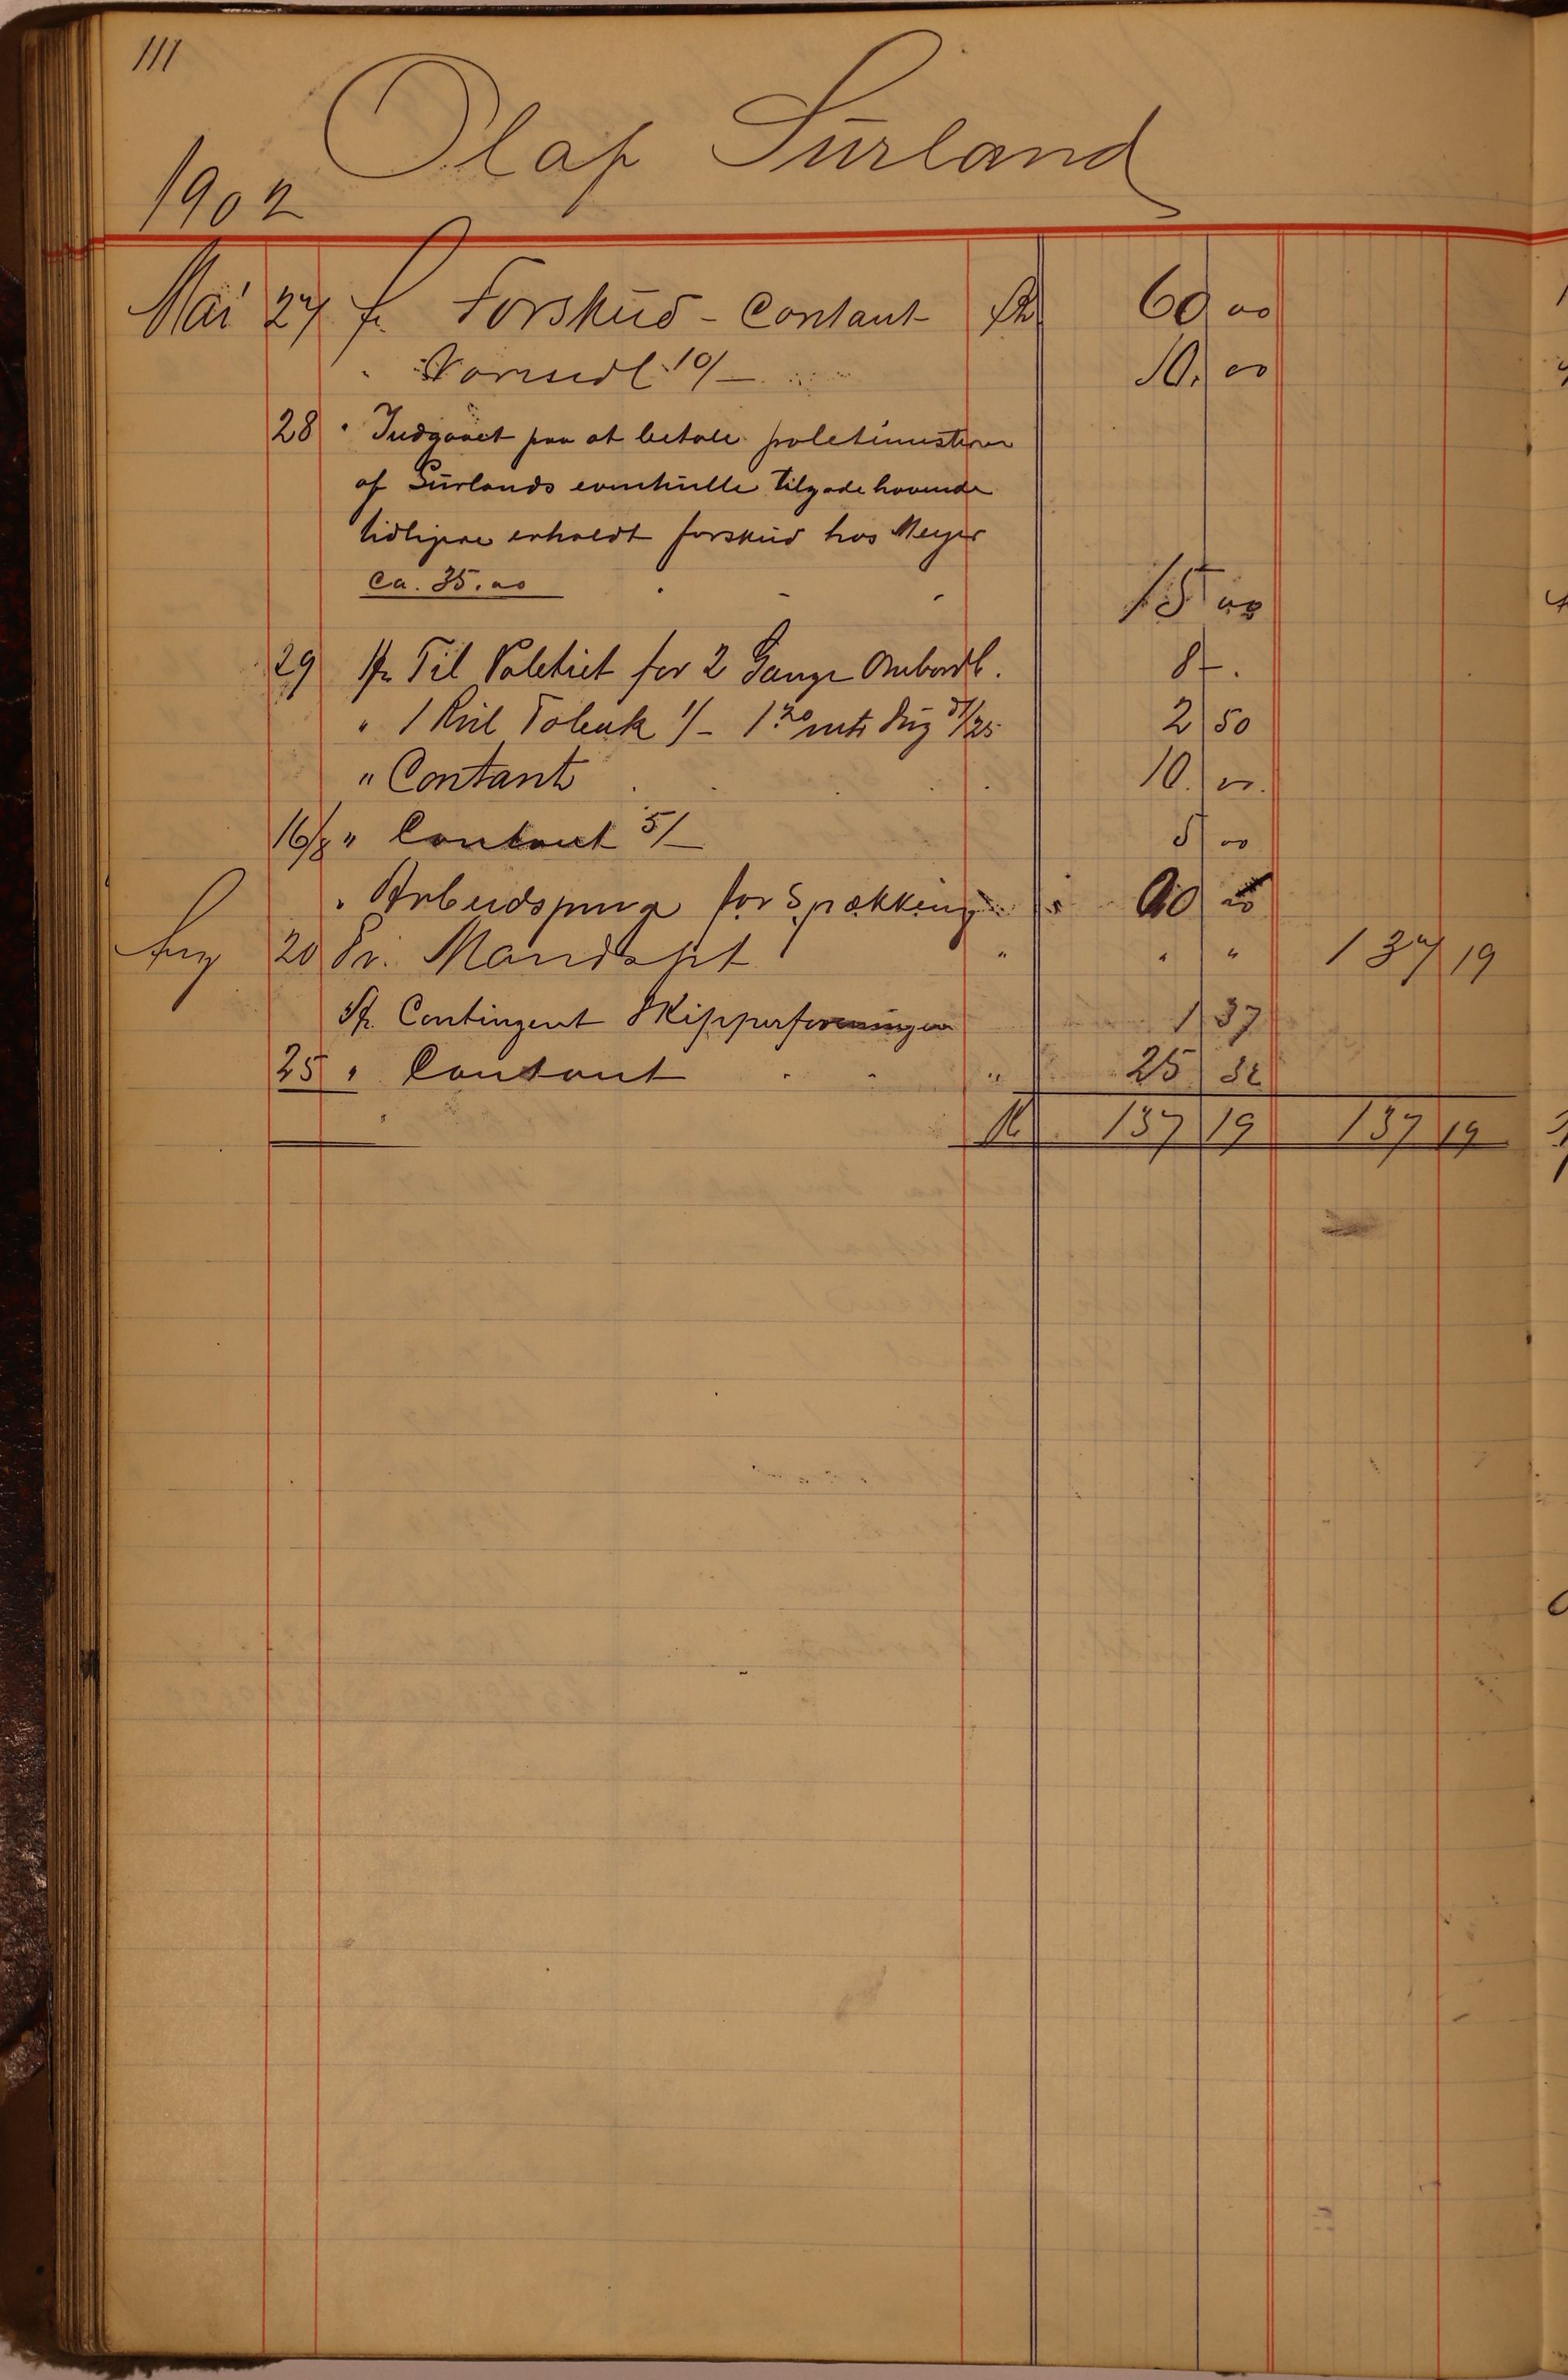 111
Olaf Surland
1902
Mai 27 fr Forskud - Contant Kr 60 00
" Formidl. 10/- 10. 00
28 " Indgaaet paa at betale politimesteren
af Surlands eventuelle tilgodehavende
tidligere erholdt forskud hos Meyer
ca. 35.00 15 00
29 fr Til Politiet for 2 Gange Ombordb. 8 -.
" 1 Rul Tobak 1/- 1 20 mtr dug 2 50
" Contant 10. 00.
16/8 " Contant 5/- 5 00
" Arbeidspenge for Spækking 00 00
Aug 20 Pr. Mandskt " " " 137 19
fr. Contingent Skipperforeningen 1 37
25 " Contant " 25 32
Kr 137 19 137 19